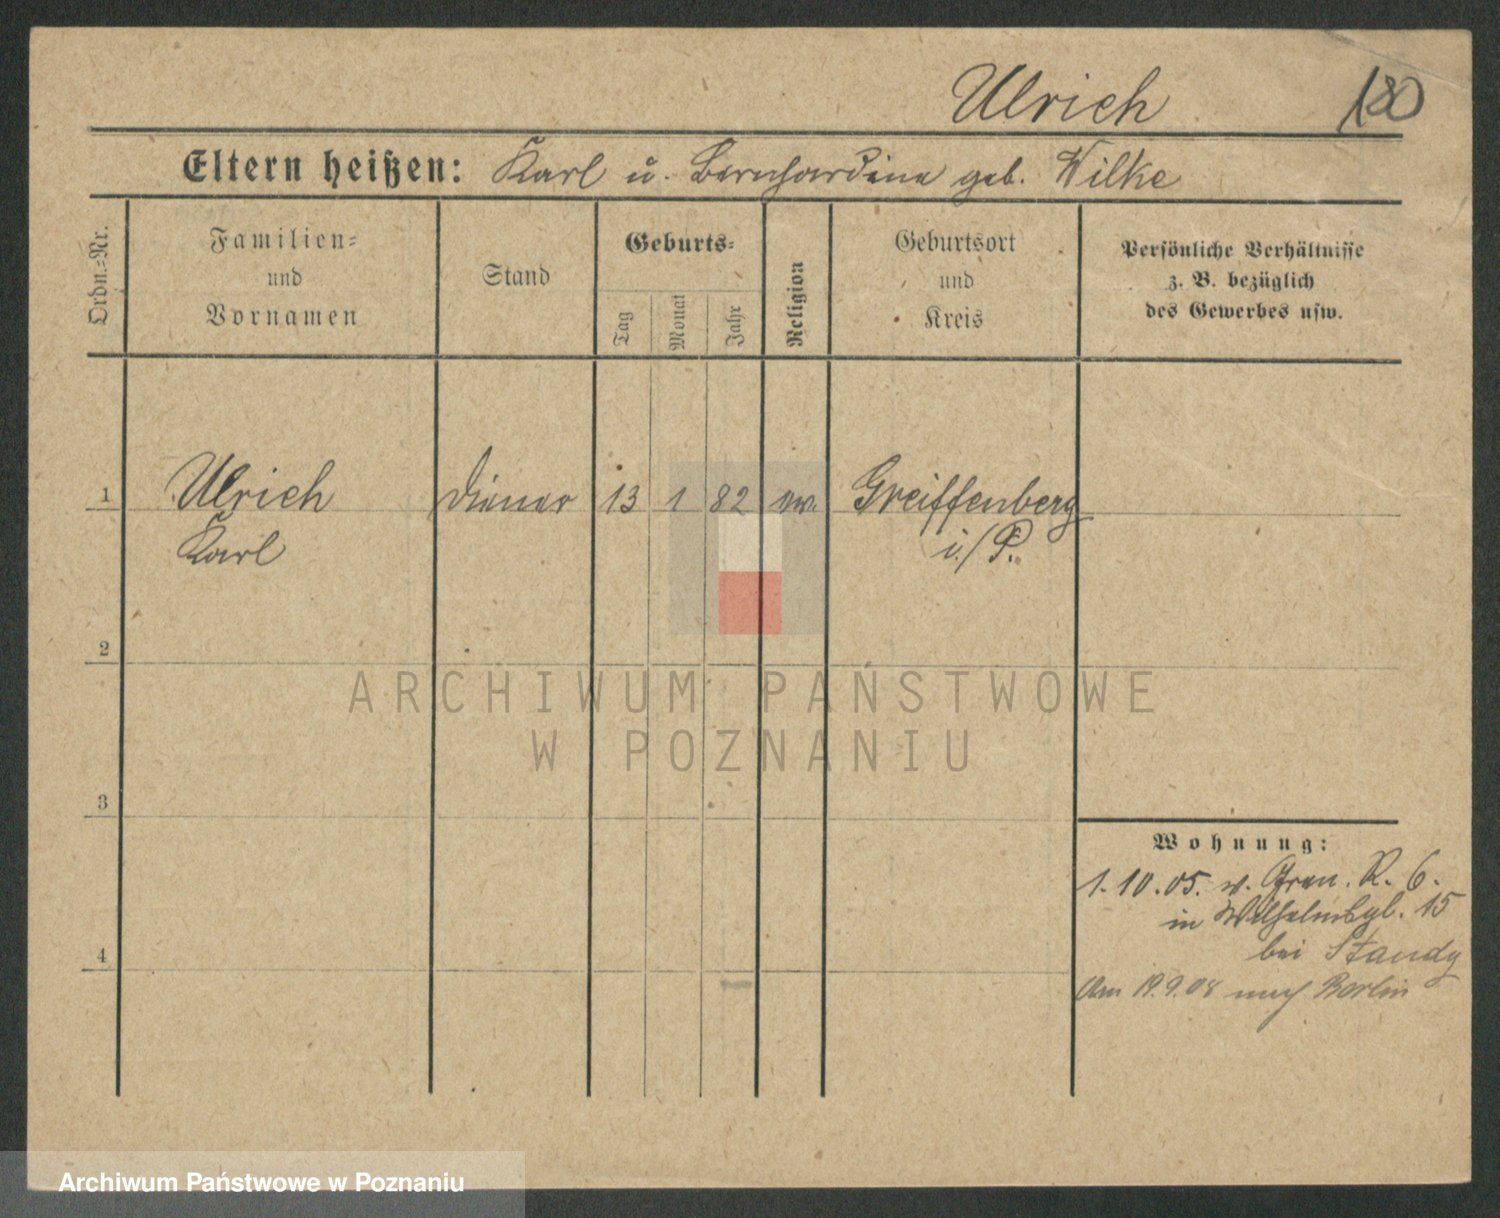 Ulrich 180
Eltern heißen: Karl u. Bernhardine geb. Wilke
Ordn.=Nr.
Familien=
und
Vornamen
Stand
Geburts=
Tag
Monat
Jahr
Religion
Geburtsort
und
Kreis
Persönliche Verhältnisse
z. B. bezüglich
des Gewerbes usw.
1 Ulrich Diener 13 1 82 ev. Greiffenberg
Karl i./P.
2
ARCHIWUM PAŃSTWOWE
W POZNANIU
3
Wohnung:
1.10.05. v. Gren. R. 6.
in Wilhelmspl. 15
bei Standy
4
Am 19.9.08 nach Berlin
Archiwum Państwowe w Poznaniu